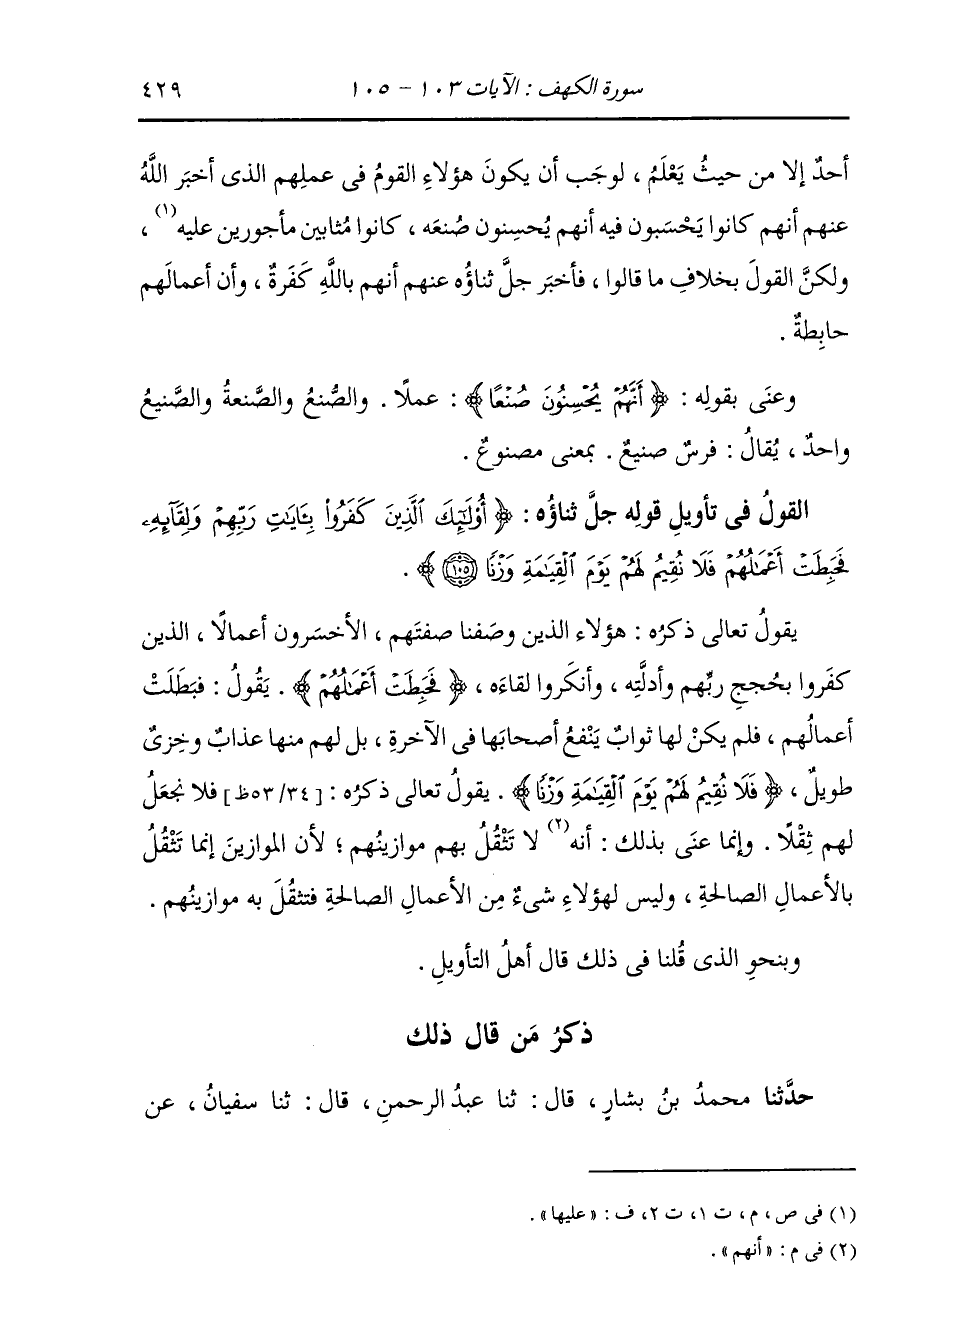 سورة الكهف : الآيات ١٠٣ - ١٠٥ ٤٢٩
أحدٌ إلا من حيثُ يَعْلَمُ ، لوجَب أن يكونَ هؤلاءِ القومُ فى عملِهم الذى أخبَر اللَّهُ
عنهم أنهم كانوا يَحْسَبون فيه أنهم يُحسِنون صُنعَه ، كانوا مُثابين مأجورين عليه(١) ،
ولكنَّ القولَ بخلافِ ما قالوا ، فأخبَر جلَّ ثناؤُه عنهم أنهم باللَّهِ كَفَرةٌ ، وأن أعمالَهم
حابِطةٌ .
وعنَى بقولِه : ﴿ أَنَّهُمْ يُحْسِنُونَ صُنْعًا ﴾ : عملًا . والصُّنعُ والصَّنعةُ والصَّنيعُ
واحدٌ ، يُقالُ : فرسٌ صنيعٌ . بمعنى مصنوعٌ .
القولُ فى تأويلِ قولِه جلَّ ثناؤُه : ﴿ أُوْلَٰٓئِكَ ٱلَّذِينَ كَفَرُواْ بِـَٔايَٰتِ رَبِّهِمْ وَلِقَآئِهِۦ
فَحَبِطَتْ أَعْمَٰلُهُمْ فَلَا نُقِيمُ لَهُمْ يَوْمَ ٱلْقِيَٰمَةِ وَزْنًا ١٠٥ ﴾ .
يقولُ تعالى ذكرُه : هؤلاء الذين وصَفنا صفتَهم ، الأخسَرون أعمالًا ، الذين
كفَروا بحُججِ ربِّهم وأدلَّتِه ، وأنكَروا لقاءَه ، ﴿ فَحَبِطَتْ أَعْمَٰلُهُمْ ﴾ . يَقولُ : فبَطَلَتْ
أعمالُهم ، فلم يكنْ لها ثوابٌ يَنْفعُ أصحابَها فى الآخرةِ ، بل لهم منها عذابٌ وخِزىٌ
طويلٌ ، ﴿ فَلَا نُقِيمُ لَهُمْ يَوْمَ ٱلْقِيَٰمَةِ وَزْنًا ﴾ . يقولُ تعالى ذكرُه : [٥٣/٣٤ظ] فلا نجعَلُ
لهم ثِقْلًا . وإنما عنَى بذلك : أنه(٢) لا تَثْقُلُ بهم موازينُهم ؛ لأن الموازينَ إنما تَثْقُلُ
بالأعمالِ الصالحةِ ، وليس لهؤلاءِ شىءٌ مِن الأعمالِ الصالحةِ فتثقُلَ به موازينُهم .
وبنحوِ الذى قُلنا فى ذلك قال أهلُ التأويلِ .
ذكرُ مَن قال ذلك
حدَّثنا محمدُ بنُ بشارٍ ، قال : ثنا عبدُ الرحمنِ ، قال : ثنا سفيانُ ، عن
(١) فى ص ، م ، ت ١، ت ٢، ف : « عليها » .
(٢) فى م : « أنهم » .